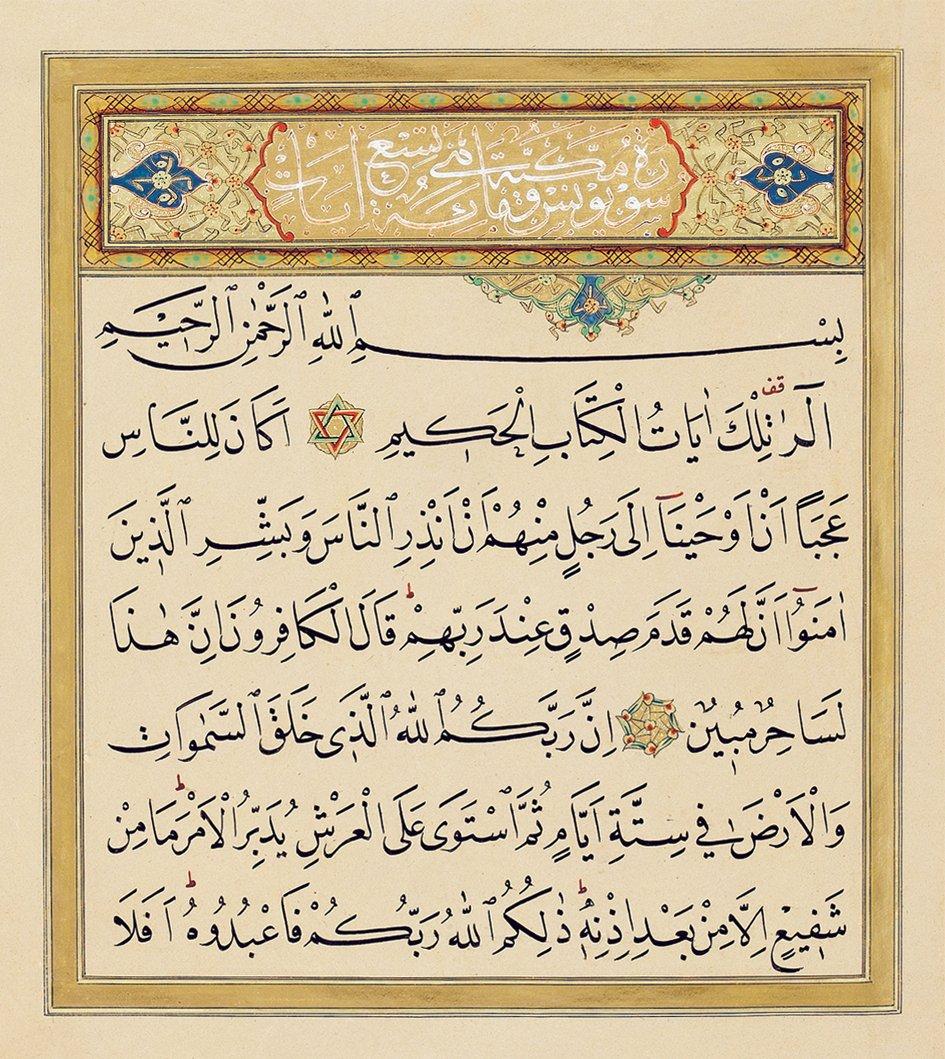 سورة يونس مكية وهي مائة وتسع ايات
بِسْمِ ٱللّٰهِ ٱلرَّحْمٰنِ ٱلرَّحِيمِ
الٓرٰ قف تِلْكَ اٰيَاتُ الْكِتَابِ الْحَكِيمِ اَكَانَ لِلنَّاسِ
عَجَبًا اَنْ اَوْحَيْنَآ اِلٰى رَجُلٍ مِنْهُمْ اَنْ اَنْذِرِ ٱلنَّاسَ وَبَشِّرِ ٱلَّذِينَ
اٰمَنُوٓا اَنَّ لَهُمْ قَدَمَ صِدْقٍ عِنْدَ رَبِّهِمْ ط قَالَ الْكَافِرُونَ اِنَّ هٰذَا
لَسَاحِرٌ مُبِينٌ اِنَّ رَبَّكُمُ ٱللّٰهُ ٱلَّذِى خَلَقَ ٱلسَّمٰوَاتِ
وَالْاَرْضَ فِى سِتَّةِ اَيَّامٍ ثُمَّ ٱسْتَوٰى عَلَى الْعَرْشِ يُدَبِّرُ الْاَمْرَ ط مَا مِنْ
شَفِيعٍ اِلَّا مِنْ بَعْدِ اِذْنِهٖ ط ذٰلِكُمُ ٱللّٰهُ رَبُّكُمْ فَاعْبُدُوهُ ط اَفَلَا